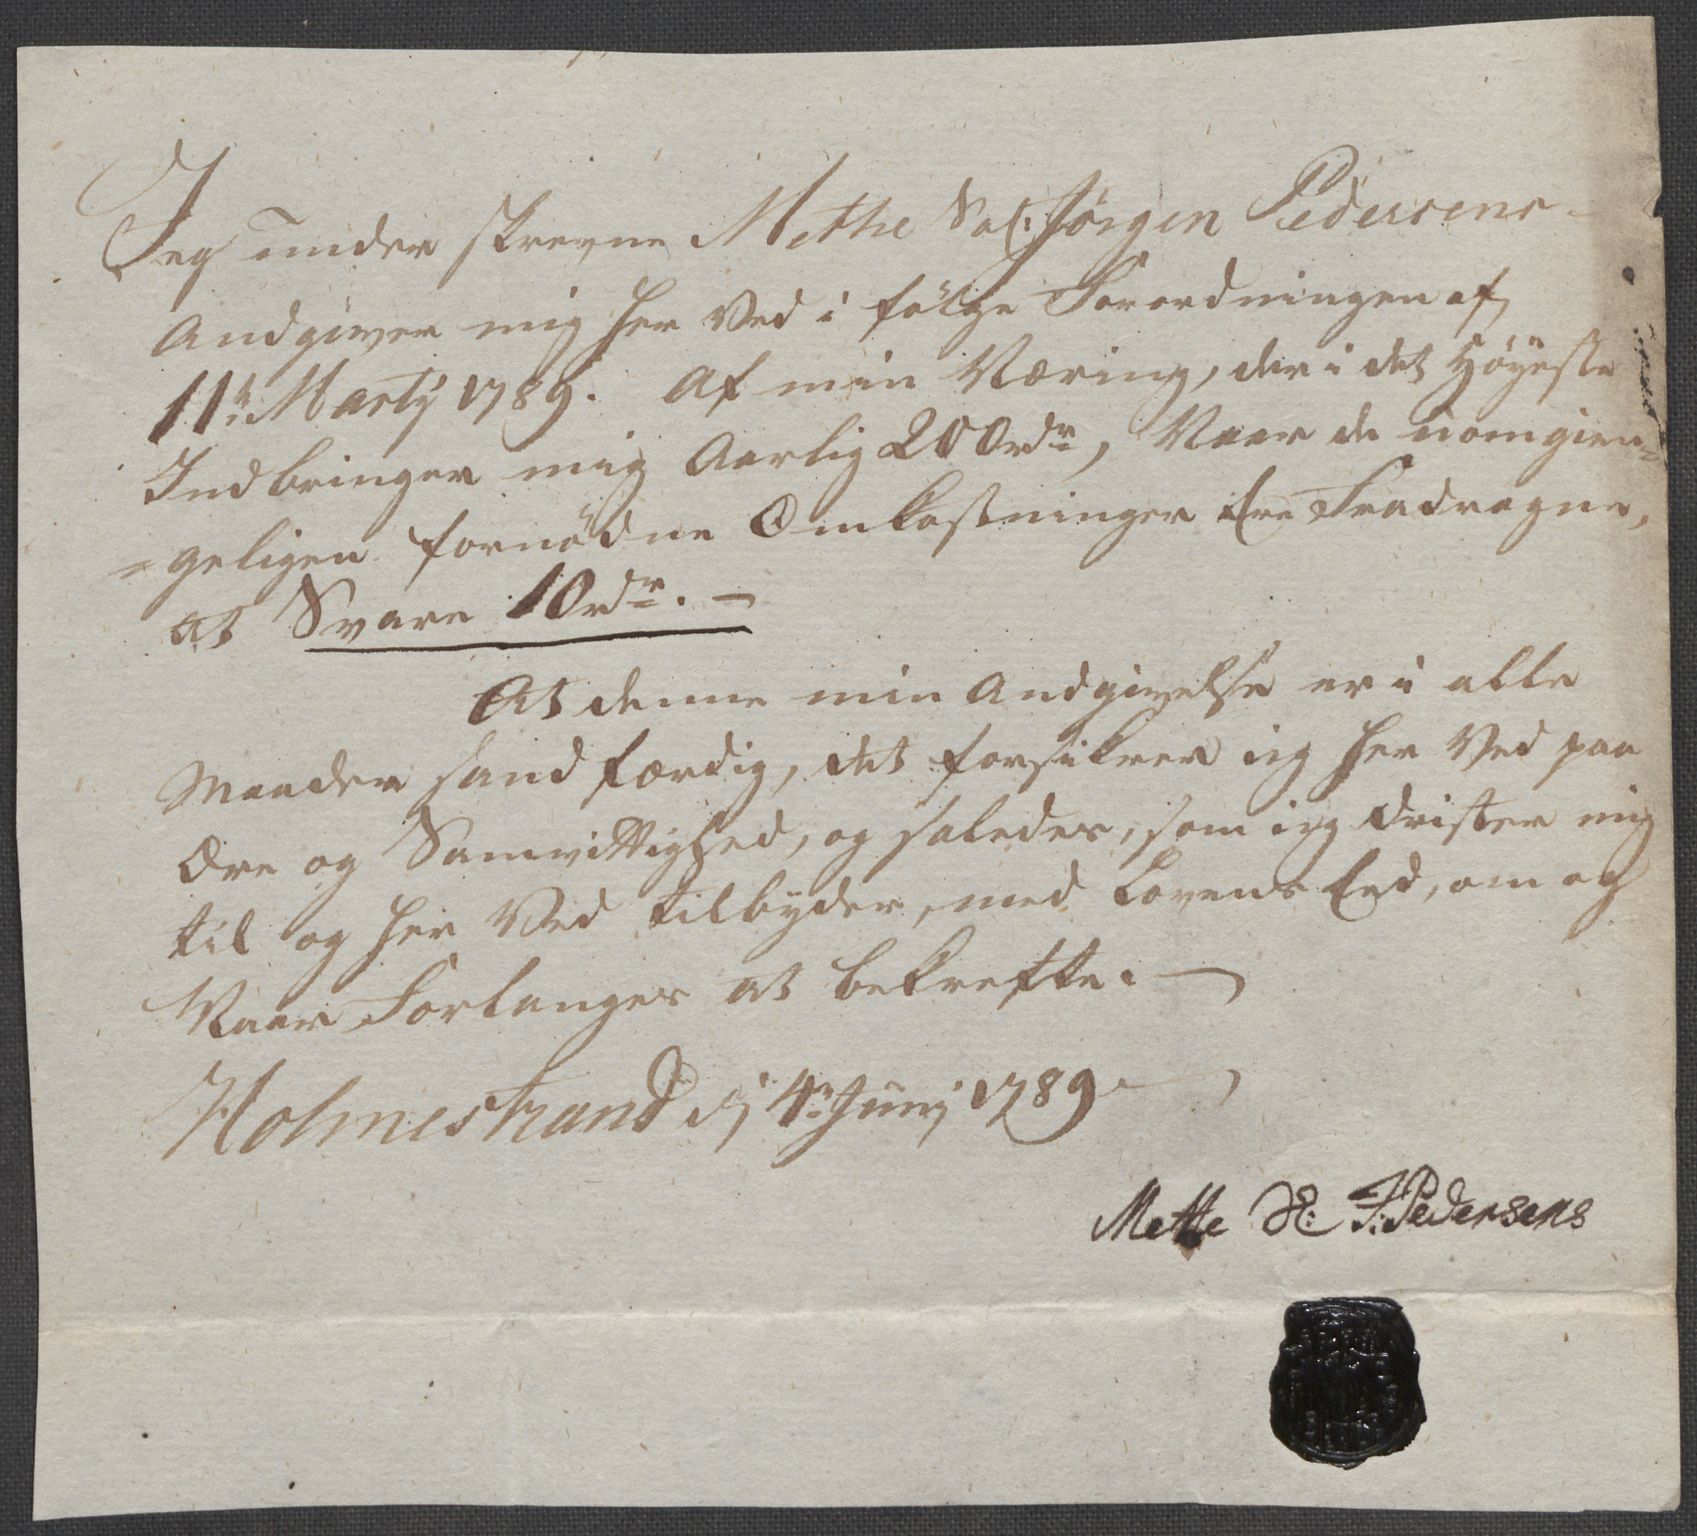 Jeg under skrevne Methe Sal: Jörgen Pedersens
Andgiver mig her Ved i fölge Forordningen af
11te Marty 1789. Af min Næring, der i det Höyeste
Indbringer mig Aarlig 200rdr, Naar de uomgien=
=geligen fornödne Omkostninger Ere Fradragne,
at Svare 10rdr.
At denne min Andgivelse er i alle
Maader sandfærdig, det forsikrer ieg her Ved paa
Ære og Samvittighed, og saledes, som ieg drister mig
til og her Ved tilbyder, med Lovens Eed, om og
Naar Forlanges at bekrefte.
Holmestrand dj 4de Junj 1789
Mette S: J: Pedersens